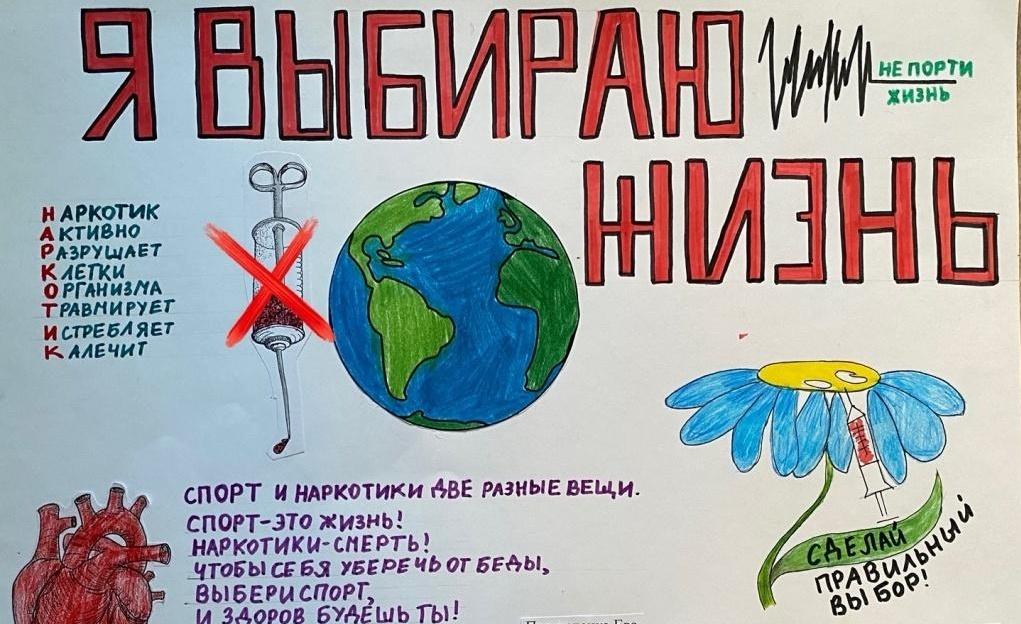 Я ВЫБИРАЮ
ЖИЗНЬ
НЕ ПОРТИ
ЖИЗНЬ
НАРКОТИК
АКТИВНО
РАЗРУШАЕТ
КЛЕТКИ
ОРГАНИЗМА
ТРАВМИРУЕТ
ИСТРЕБЛЯЕТ
КАЛЕЧИТ
СПОРТ И НАРКОТИКИ ДВЕ РАЗНЫЕ ВЕЩИ.
СПОРТ-ЭТО ЖИЗНЬ!
НАРКОТИКИ-СМЕРТЬ!
ЧТОБЫ СЕБЯ УБЕРЕЧЬ ОТ БЕДЫ,
ВЫБЕРИ СПОРТ,
И ЗДОРОВ БУДЕШЬ ТЫ!
СДЕЛАЙ
ПРАВИЛЬНЫЙ
ВЫБОР!